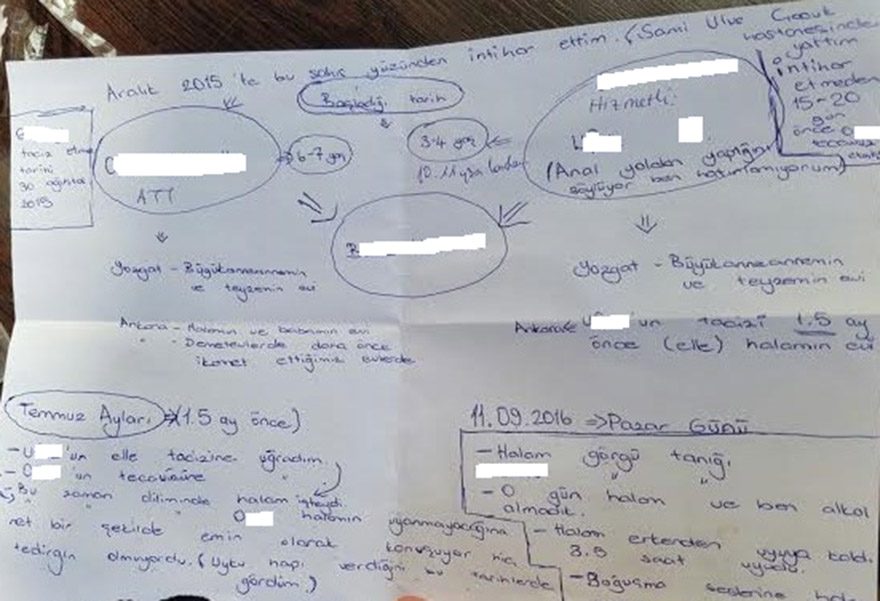 Aralık 2015'te bu şahıs yüzünden intihar ettim. (Sami Ulus Çocuk
hastanesinde
yattım
intihar
etmeden
15-20
gün
önce O
tecavüz
Başladığı tarih
taciz etme
tarihi
30 ağustos
2015
ATT
6-7 yaş
3-4 yaş
10-11 yaşa kadar
Hizmetli:
(Anal yoldan yaptığını
söylüyor ben hatırlamıyorum)
B
Yozgat - Büyükanneannemin
ve teyzemin evi
Ankara - Halamın ve babamın evi
" - Demetevlerde daha önce
ikamet ettiğimiz evlerde
Yozgat - Büyükanneannemin
ve teyzemin evi
Ankara'da U 'un tacizi 1.5 ay
önce (elle) halamın evi
Temmuz Ayları => (1.5 ay önce)
- U 'un elle tacizine uğradım.
- O 'un tecavüzüne "
Bu zaman diliminde halam işteydi.
O halamın uyanmayacağına
net bir şekilde emin olarak konuşuyor hiç
tedirgin olmuyordu. (Uyku hapı verdiğini bu tarihlerde
gördüm.)
11.09.2016 => Pazar Günü
- Halam görgü tanığı
" "
- O gün halam ve ben alkol
almadık.
- Halam erkenden uyuya kaldı
3.5 saat uyudu.
- Boğuşma seslerine